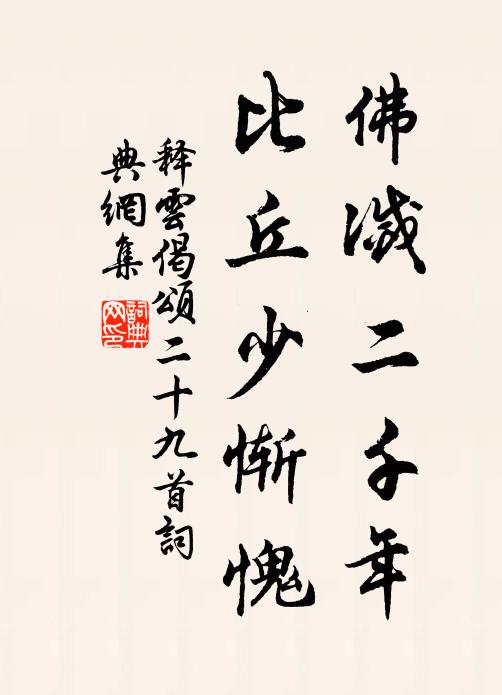 佛滅二千年
比丘少慚愧
釋雲偈頌二十九首詞
典網集
詞典
网印